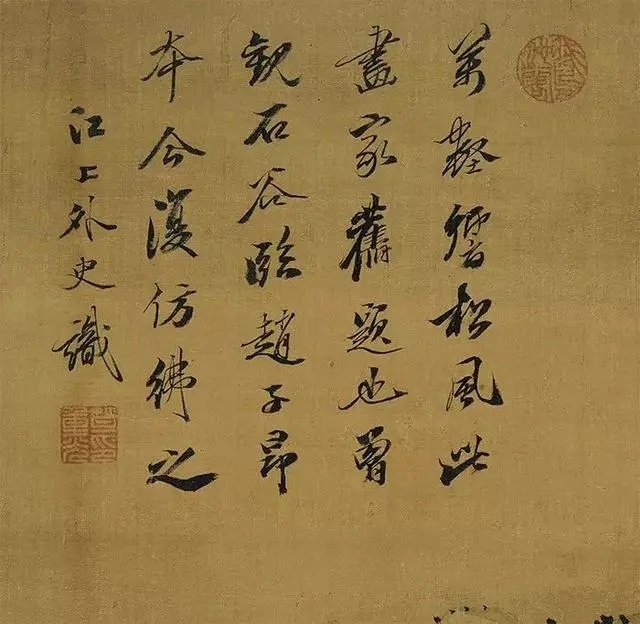 萬壑響松風此
畫家舊題也曾
觀石谷臨趙子昂
本今復仿彿之
江上外史識